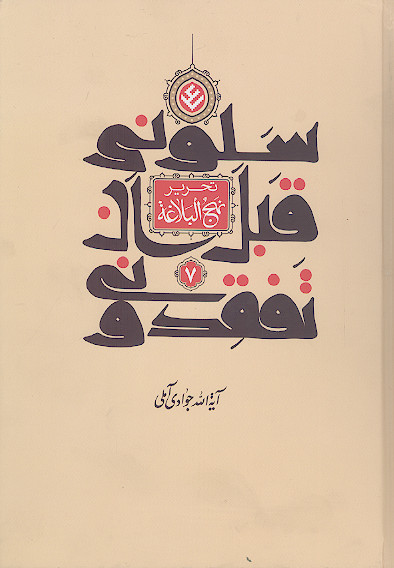 سَلونی
قَبلَ اَن
تَفقِدونی
تحریر
نهج البلاغة
۷
آیة الله جوادی آملی